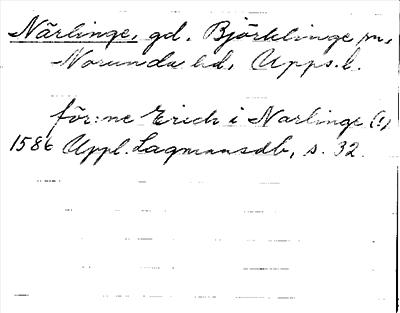 Närlinge, gd. Björklinge sn,
Norunda hd, Upps. l.
för:ne Erich i Narlinge (!)
1586 Uppl. Lagmansdb, s. 32.